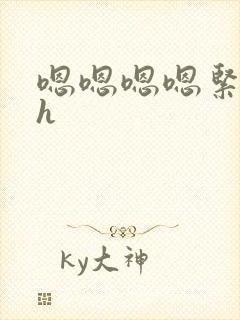 嗯嗯嗯嗯緊
h
ky大神